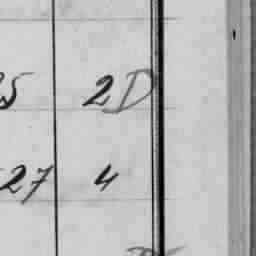 5 2D
27 4